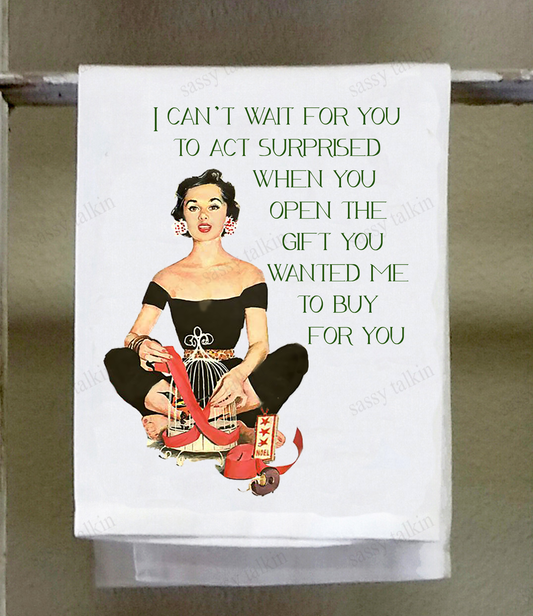 sassy talkin
sassy talkin
I CAN'T WAIT FOR YOU
TO ACT SURPRISED
WHEN YOU
OPEN THE
GIFT YOU
WANTED ME
TO BUY
FOR YOU
sassy talkin
sassy talkin
sassy talkin
sassy talkin
sassy talkin
NOEL
sassy talkin
sassy talkin